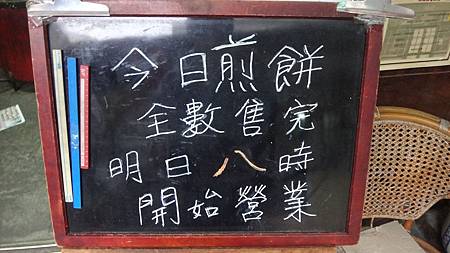 今日煎餅
全數售完
明日八時
開始營業